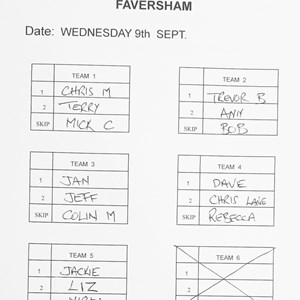 FAVERSHAM
Date: WEDNESDAY 9th SEPT.
TEAM 1
1 CHRIS M
2 TERRY
SKIP MICK C
TEAM 2
1 TREVOR B
2 ANN
SKIP BOB
TEAM 3
1 JAN
2 JEFF
SKIP COLIN M
TEAM 4
1 DAVE
2 CHRIS LANE
SKIP REBECCA
TEAM 5
1 JACKIE
2 LIZ
TEAM 6
1
2